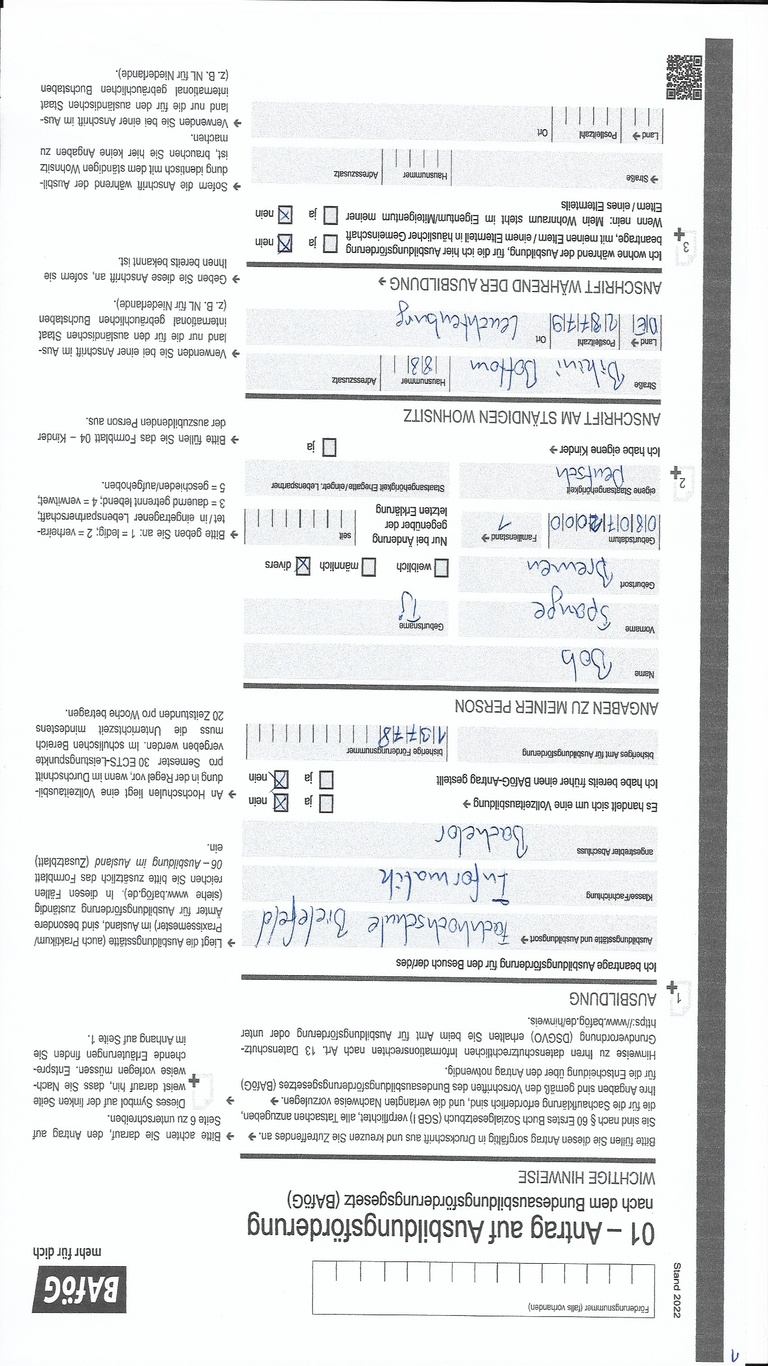 1
Stand 2022
Förderungsnummer (falls vorhanden)
BAföG
mehr für dich
01 – Antrag auf Ausbildungsförderung
nach dem Bundesausbildungsförderungsgesetz (BAföG)
WICHTIGE HINWEISE
Bitte füllen Sie diesen Antrag sorgfältig in Druckschrift aus und kreuzen Sie Zutreffendes an. →
Sie sind nach § 60 Erstes Buch Sozialgesetzbuch (SGB I) verpflichtet, alle Tatsachen anzugeben,
die für die Sachaufklärung erforderlich sind, und die verlangten Nachweise vorzulegen. →
Ihre Angaben sind gemäß den Vorschriften des Bundesausbildungsförderungsgesetzes (BAföG)
für die Entscheidung über den Antrag notwendig.
Hinweise zu Ihren datenschutzrechtlichen Informationsrechten nach Art. 13 Datenschutz-
Grundverordnung (DSGVO) erhalten Sie beim Amt für Ausbildungsförderung oder unter
https://www.bafög.de/hinweis.
→ Bitte achten Sie darauf, den Antrag auf
Seite 6 zu unterschreiben.
→ Dieses Symbol auf der linken Seite
weist darauf hin, dass Sie Nach-
weise vorlegen müssen. Entspre-
chende Erläuterungen finden Sie
im Anhang auf Seite 1.
1 AUSBILDUNG
Ich beantrage Ausbildungsförderung für den Besuch der/des
Ausbildungsstätte und Ausbildungsort → Fachhochschule Bielefeld
Klasse/Fachrichtung Informatik
angestrebter Abschluss Bachelor
→ Liegt die Ausbildungsstätte (auch Praktikum/
Praxissemester) im Ausland, sind besondere
Ämter für Ausbildungsförderung zuständig
(siehe www.bafög.de). In diesen Fällen
reichen Sie bitte zusätzlich das Formblatt
06 – Ausbildung im Ausland (Zusatzblatt)
ein.
Es handelt sich um eine Vollzeitausbildung → ja nein
Ich habe bereits früher einen BAföG-Antrag gestellt ja nein
bisheriges Amt für Ausbildungsförderung bisherige Förderungsnummer
13778
→ An Hochschulen liegt eine Vollzeitausbil-
dung in der Regel vor, wenn im Durchschnitt
pro Semester 30 ECTS-Leistungspunkte
vergeben werden. Im schulischen Bereich
muss die Unterrichtszeit mindestens
20 Zeitstunden pro Woche betragen.
ANGABEN ZU MEINER PERSON
Name Bob
Vorname Spange Geburtsname Tj
Geburtsort Bremen weiblich männlich divers
Geburtsdatum 08072000 Familienstand → 1
Nur bei Änderung
gegenüber der
letzten Erklärung
seit
→ Bitte geben Sie an: 1 = ledig; 2 = verheira-
tet / in eingetragener Lebenspartnerschaft;
3 = dauernd getrennt lebend; 4 = verwitwet;
5 = geschieden/aufgehoben.
2 eigene Staatsangehörigkeit Deutsch Staatsangehörigkeit Ehegatte/eingetr. Lebenspartner
Ich habe eigene Kinder → ja
→ Bitte füllen Sie das Formblatt 04 – Kinder
der auszubildenden Person aus.
ANSCHRIFT AM STÄNDIGEN WOHNSITZ
Straße Bikini Bottom Hausnummer 83 Adresszusatz
Land → DE Postleitzahl 28779 Ort Leuchtenburg
→ Verwenden Sie bei einer Anschrift im Aus-
land nur die für den ausländischen Staat
international gebräuchlichen Buchstaben
(z. B. NL für Niederlande).
ANSCHRIFT WÄHREND DER AUSBILDUNG →
→ Geben Sie diese Anschrift an, sofern sie
Ihnen bereits bekannt ist.
3 Ich wohne während der Ausbildung, für die ich hier Ausbildungsförderung
beantrage, mit meinen Eltern / einem Elternteil in häuslicher Gemeinschaft ja nein
Wenn nein: Mein Wohnraum steht im Eigentum/Miteigentum meiner
Eltern / eines Elternteils ja nein
→ Straße Hausnummer Adresszusatz
Land → Postleitzahl Ort
→ Sofern die Anschrift während der Ausbil-
dung identisch mit dem ständigen Wohnsitz
ist, brauchen Sie hier keine Angaben zu
machen.
→ Verwenden Sie bei einer Anschrift im Aus-
land nur die für den ausländischen Staat
international gebräuchlichen Buchstaben
(z. B. NL für Niederlande).